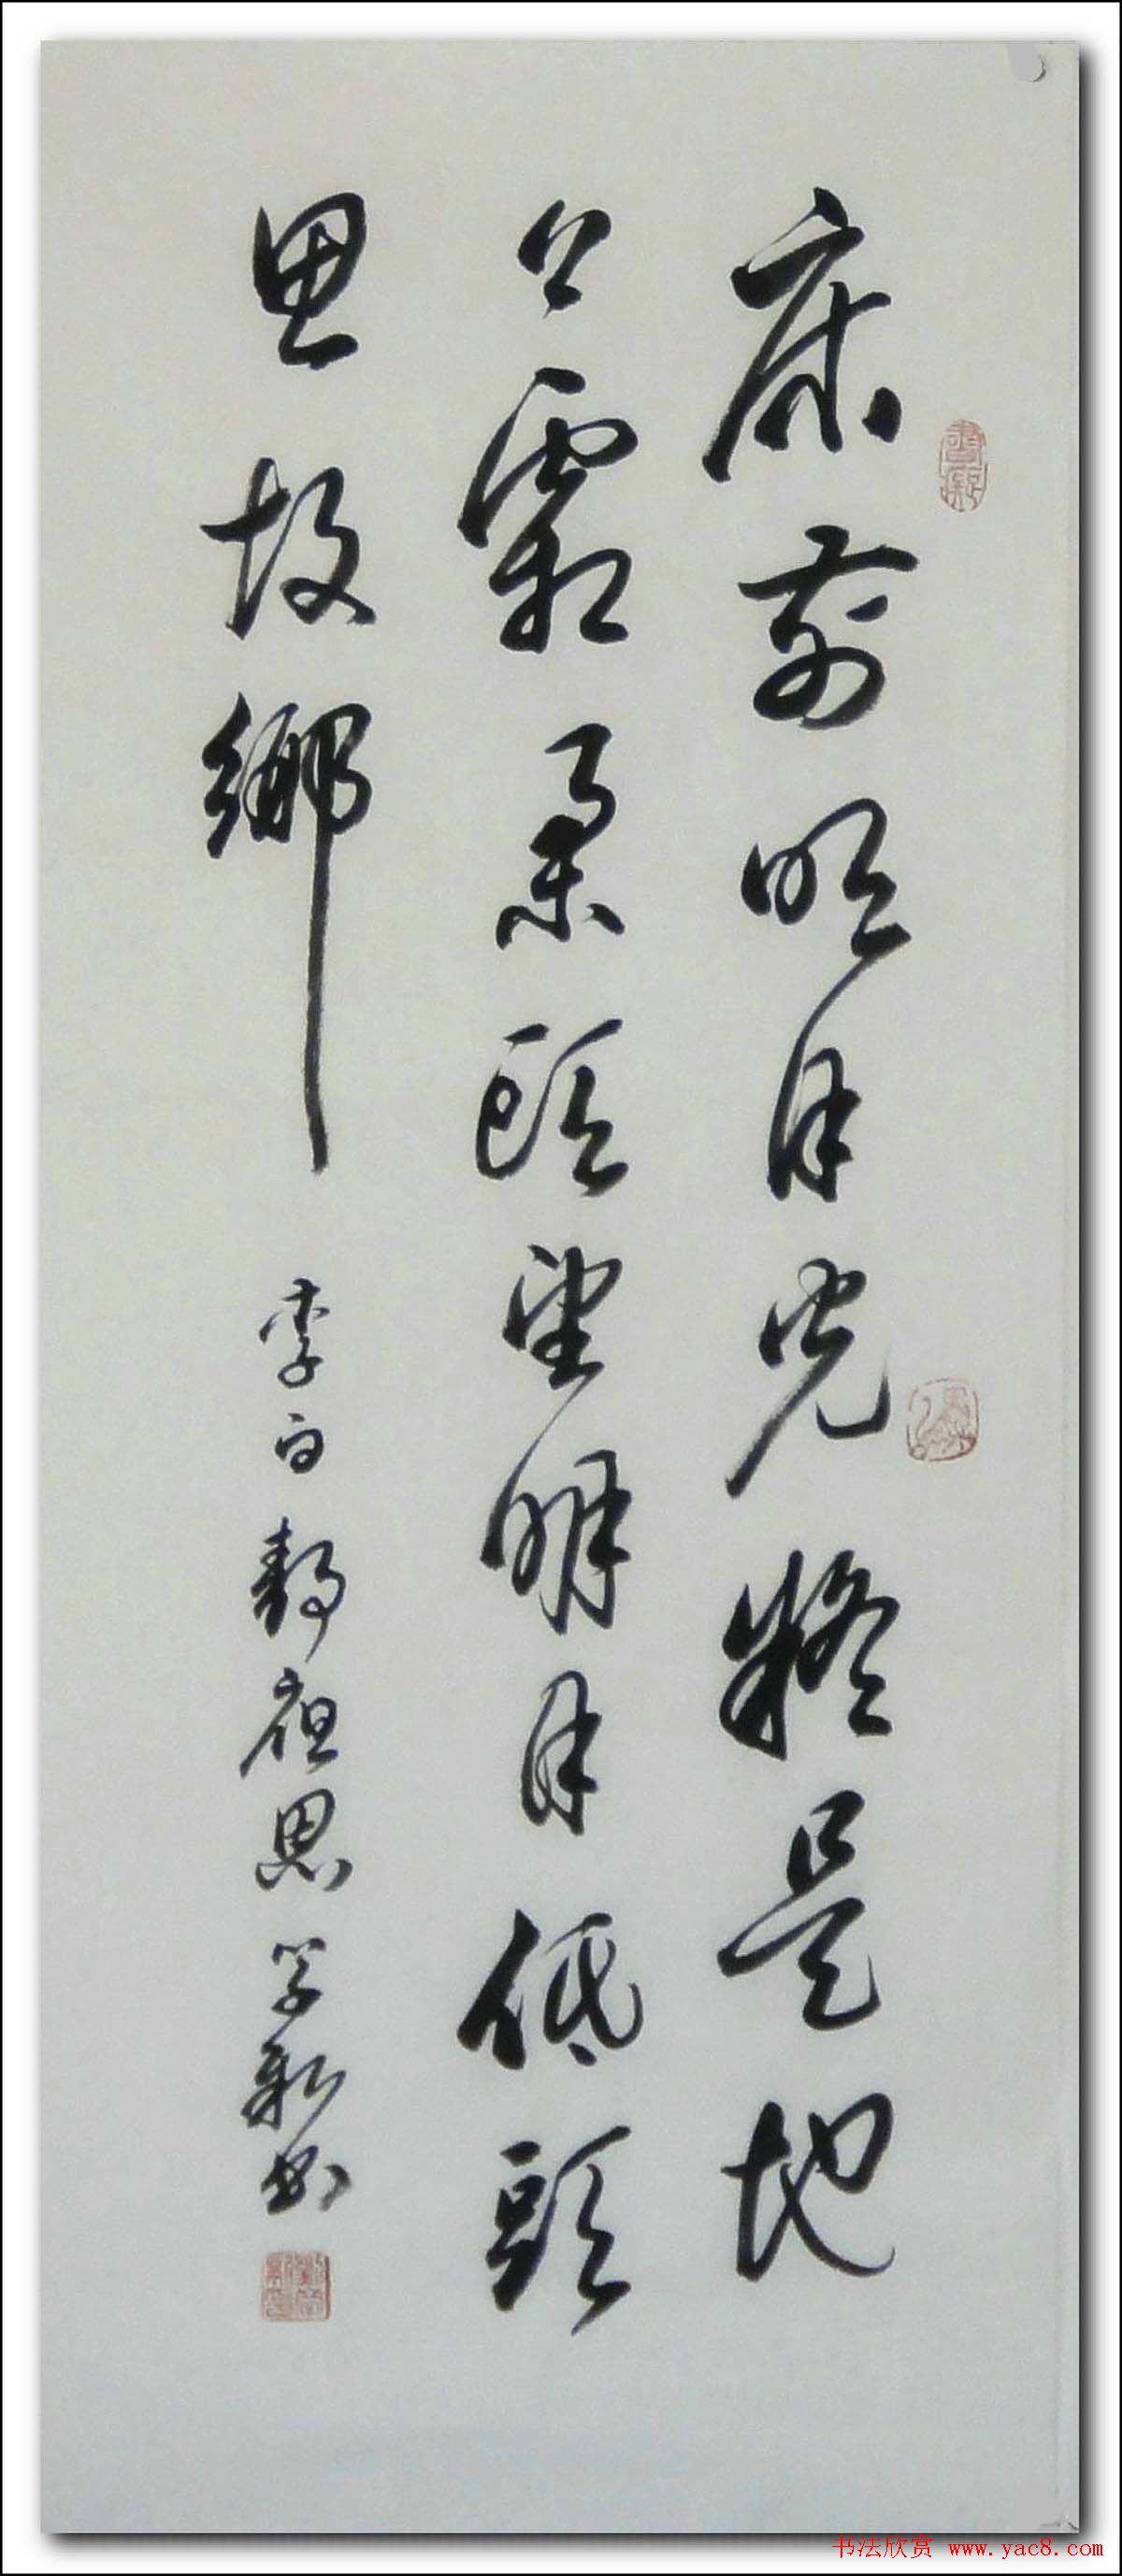 床前明月光疑是地
上霜舉頭望明月低頭
思故鄉
李白靜夜思學新書
書癡
书法欣赏 www.yac8.com